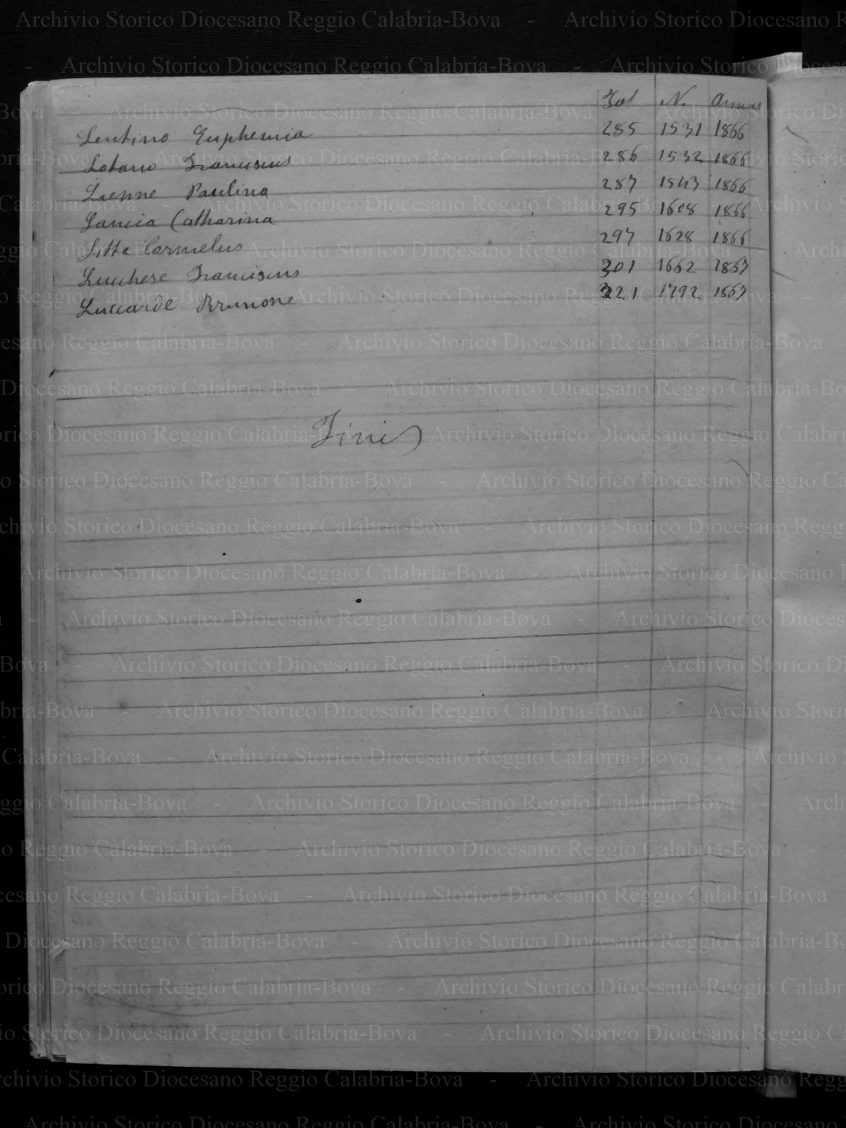 Fol N. Annus
Lentino Euphemia 285 1531 1866
Lotano Franciscus 286 1532 1866
Laenne Paulina 287 1543 1866
Lancia Catharina 295 1608 1866
Litta Carmelus 297 1628 1866
Lucchese Franciscus 301 1662 1867
Luccarde Brunone 321 1792 1867
Finis
Archivio Storico Diocesano Reggio Calabria-Bova